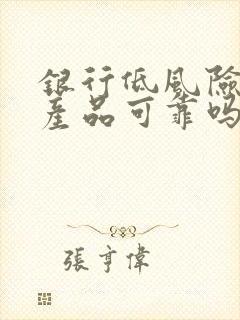 銀行低風險
產品可靠嗎
張亨偉